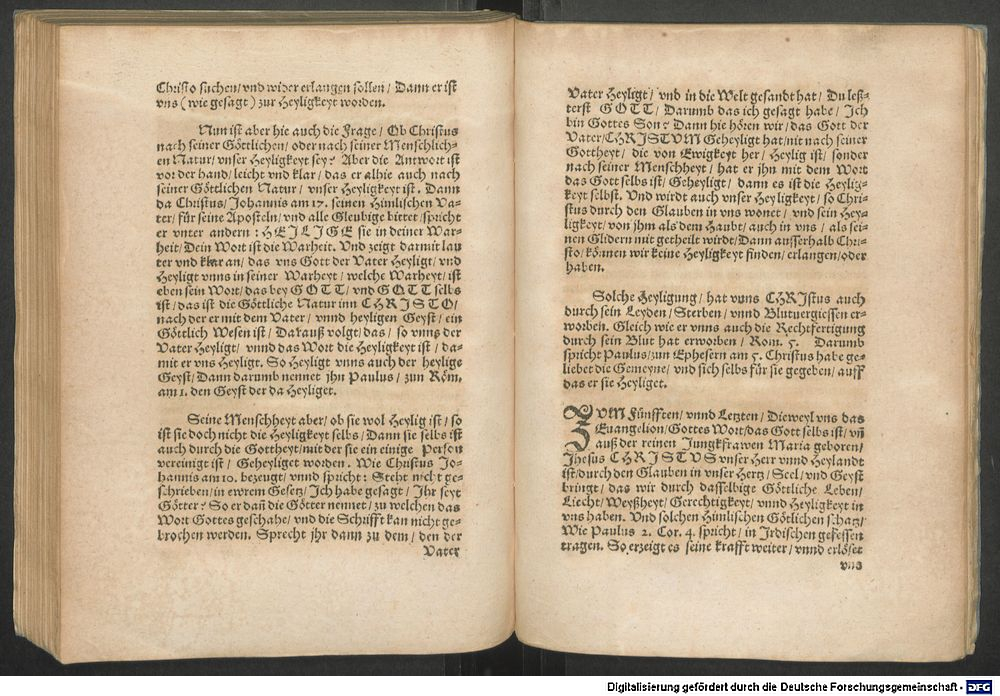 Christo suchen/ vnd wider erlangen sollen/ Dann er ist
vns (wie gesagt) zur Heyligkeyt worden.
Nun ist aber hie auch die Frage/ Ob Christus
nach seiner Göttlichen/ oder nach seiner Menschlich-
en Natur/ vnser Heyligkeyt sey? Aber die Antwort ist
vor der hand/ leicht vnd klar/ das er alhie auch nach
seiner Göttlichen Natur/ vnser Heyligkeyt ist. Dann
da Christus/ Johannis am 17. seinen Himlischen Va-
ter/ für seine Aposteln/ vnd alle Gleubige bittet/ spricht
er vnter andern: HEILIGE sie in deiner War-
heit/ Dein Wort ist die Warheit. Vnd zeigt darmit lau
ter vnd klar an/ das vns Gott der Vater Heyligt/ vnd
Heyligt vnns in seiner Warheyt/ welche Warheyt/ ist
eben sein Wort/ das bey GOTT/ vnd GOTT selbs
ist/ das ist die Göttliche Natur inn CHRISTO/
nach der er mit dem Vater/ vnnd heyligen Geyst/ ein
Göttlich Wesen ist/ Darauß volgt/ das/ so vnns der
Vater Heyligt/ vnnd das Wort die Heyligkeyt ist/ da-
mit er vns Heyligt. So Heyligt vnns auch der heylige
Geyst/ Dann darumb nennet jhn Paulus/ zun Röm.
am 1. den Geyst der da Heyliget.
Seine Menschheyt aber/ ob sie wol Heylig ist/ so
ist sie doch nicht die Heyligkeyt selbs/ Dann sie selbs ist
auch durch die Gottheyt/ mit der sie ein einige Person
vereinigt ist/ Geheyliget worden. Wie Christus Jo-
hannis am 10. bezeugt/ vnnd spricht: Steht nicht ge-
schrieben/ in ewrem Gesetz/ Ich habe gesagt/ Ihr seyt
Götter? So er dañ die Götter nennet/ zu welchen das
Wort Gottes geschahe/ vnd die Schrifft kan nicht ge-
brochen werden. Sprecht jhr dann zu dem/ den der
Vater
Vater Heyligt/ vnd in die Welt gesandt hat/ Du leß-
terst GOTT/ Darumb das ich gesagt habe/ Ich
bin Gottes Son? Dann hie hören wir/ das Gott der
Vater/ CHRISTVM Geheyligt hat/ nit nach seiner
Gottheyt/ die von Ewigkeyt her/ Heylig ist/ sonder
nach seiner Menschheyt/ hat er jhn mit dem Wort
das Gott selbs ist/ Geheyligt/ dann es ist die Heylig-
keyt selbst. Vnd wirdt auch vnser Heyligkeyt/ so Chri-
stus durch den Glauben in vns wonet/ vnd sein Hey-
ligkeyt/ von jhm als dem Haubt/ auch in vns/ als sei-
nen Glidern mit getheilt wirdt/ Dann ausserhalb Chri-
sto/ können wir keine Heyligkeyt finden/ erlangen/ oder
haben.
Solche Heyligung/ hat vnns CHRIstus auch
durch sein Leyden/ Sterben/ vnnd Blutuergiessen er-
worben. Gleich wie er vnns auch die Rechtfertigung
durch sein Blut hat erworben/ Rom. 5. Darumb
spricht Paulus/ zun Ephesern am 5. Christus habe ge-
liebet die Gemeyne/ vnd sich selbs für sie gegeben/ auff
das er sie Heyliget.
ZVM Fünfften/ vnnd Letzten/ Dieweyl vns das
Euangelion/ Gottes Wort/ das Gott selbs ist/ vñ
auß der reinen Jungkfrawen Maria geboren/
Jhesus CHRISTVS vnser Herr vnnd Heylandt
ist/ durch den Glauben in vnser Hertz/ Seel/ vnd Geyst
bringt/ das wir durch dasselbige Göttliche Leben/
Liecht/ Weyßheyt/ Gerechtigkeyt/ vnnd Heyligkeyt in
vns haben. Vnd solchen Himlischen Götlichen schatz/
Wie Paulus 2. Cor. 4. spricht/ in Irdischen gefessen
tragen. So erzeigt es seine krafft weiter/ vnnd erlöset
vns
Digitalisierung gefördert durch die Deutsche Forschungsgemeinschaft - DFG